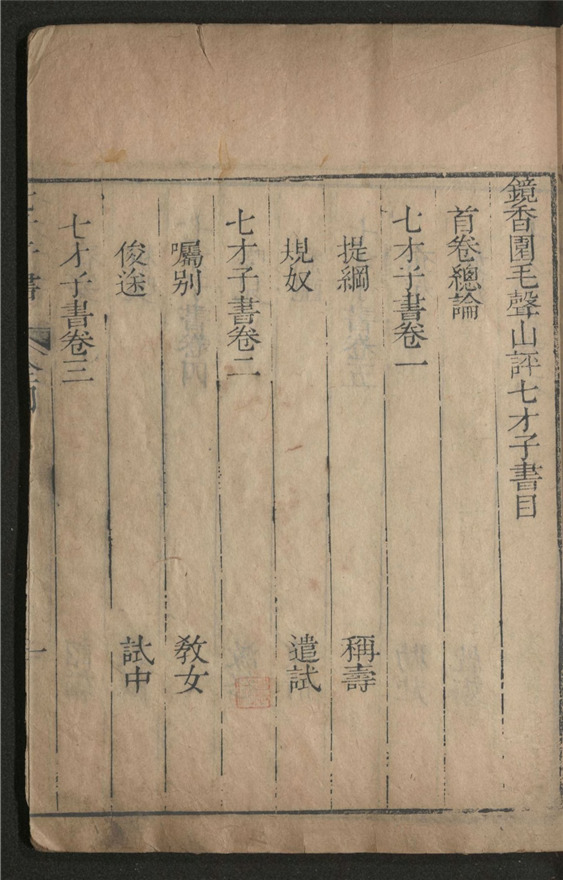 鏡香園毛聲山評七才子書目
首卷總論
七才子書卷一
提綱 稱壽
規奴 遣試
七才子書卷二
囑別 教女
俊途 試中
七才子書卷三